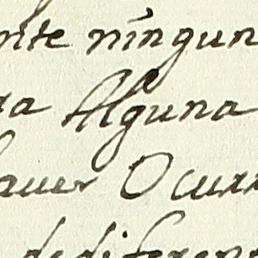 nte ningun
ra Alguna
auer Ocurr
dediferen